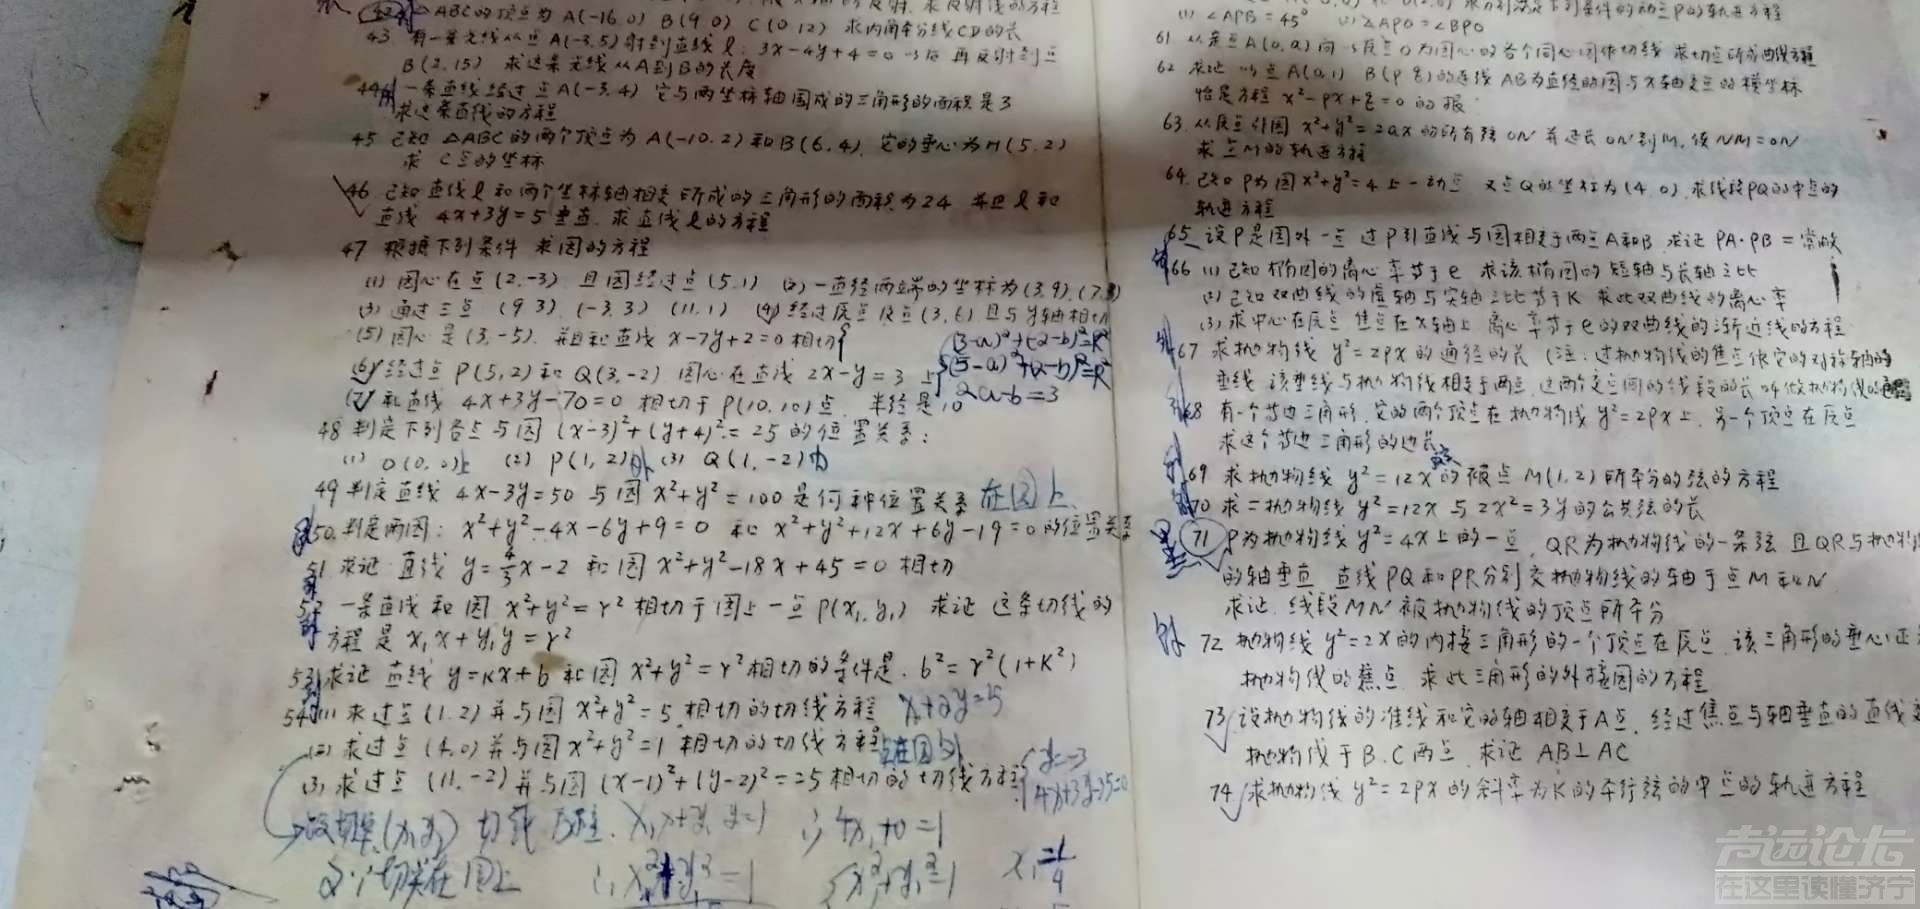 42. △ABC的顶点为 A(-16,0) B(9,0) C(0 12) 求内角平分线CD的长
43. 有一条光线从点A(-3,5)射到直线l: 3x-4y+4=0 以后 再反射到点
B(2,15) 求这条光线从A到B的长度
44. 一条直线经过点A(-3,4) 它与两坐标轴围成的三角形的面积是3
求这条直线的方程
45 已知 △ABC的两个顶点为 A(-10,2)和B(6,4), 它的垂心为H(5,2)
求 C点的坐标
46 已知直线l和两个坐标轴相交所成的三角形的面积为24 并且l和
直线 4x+3y=5垂直. 求直线l的方程
47 根据下列条件 求园的方程
(1) 园心在点(2,-3) 且园经过点(5,1) (2) 一直径两端的坐标为(3,9),(7,3)
(3) 通过三点 (9 3) (-3,3) (11,1) (4) 经过原点及点(3,6)且与y轴相切
(5) 园心是(3,-5), 并且和直线 x-7y+2=0相切
(6) 经过点P(5,2)和Q(3,-2) 园心在直线 2x-y=3 上
(7) 和直线 4x+3y-70=0 相切于P(10,10)点 半径是10
(3-a)²+(-2-b)²=R²
(5-a)²+(2-b)²=R²
2a-b=3
48 判定下列各点与园 (x-3)²+(y+4)²=25的位置关系:
(1) O(0,0)上 (2) P(1,2)外 (3) Q(1,-2)内
49 判定直线 4x-3y=50 与园x²+y²=100是何种位置关系 在园上
50. 判定两园: x²+y²-4x-6y+9=0 和 x²+y²+12x+6y-19=0的位置关系
51 求证 直线 y=4/3x-2 和园x²+y²-18x+45=0 相切
52 一条直线和园 x²+y²=r²相切于园上一点P(x₁,y₁) 求证 这条切线的
方程是x₁x+y₁y=r²
53 求证 直线y=kx+b和园x²+y²=r²相切的条件是. b²=r²(1+K²)
54 (1) 求过点(1,2)并与园x²+y²=5相切的切线方程 x+2y=5
(2) 求过点(4,0)并与园x²+y²=1相切的切线方程 点在园外
(3) 求过点(11,-2)并与园(x-1)²+(y-2)²=25相切的切线方程 y=-3
4x+3y-35=0
切线方程. x₁x+y₁y=1 ∴4x₁+0=1
切点在园上 x₁²+y₁²=1 x₁=1/4
(1) ∠APB=45° (2) ∠APO=∠BPO
61 从定点A(0,a)向以原点O为园心的各个同心园作切线 求切点所成曲线方程
62 求证 以点A(0,1) B(p q)的连线AB为直径的园与x轴交点的横坐标
恰是方程 x²-px+q=0 的根
63. 从原点作园 x²+y²=2ax的所有弦ON 并延长ON到M, 使NM=ON
求点M的轨迹方程
64. 已知P为园x²+y²=4上一动点 又点Q的坐标为(4,0), 求线段PQ的中点的
轨迹方程
65 设P是园外一点 过P引直线与园相交于两点A和B, 求证 PA·PB=常数
66 (1) 已知椭园的离心率等于e 求该椭园的短轴与长轴之比
(2) 已知双曲线的虚轴与实轴之比等于K 求此双曲线的离心率
(3) 求中心在原点 焦点在x轴上 离心率等于e的双曲线的渐近线的方程
67 求抛物线 y²=2px的通径的长 (注: 过抛物线的焦点作它的对称轴的
垂线 该垂线与抛物线相交于两点, 这两个交点间的线段的长叫做抛物线的通径
68 有一个等边三角形, 它的两个顶点在抛物线y²=2px上, 另一个顶点在原点
求这个等边三角形的边长
69 求抛物线 y²=12x的被点M(1,2)所平分的弦的方程
70 求二抛物线y²=12x与2x²=3y的公共弦的长
71 P为抛物线y²=4x上的一点, QR为抛物线的一条弦 且QR与抛物线
的轴垂直 直线PQ和PR分别交抛物线的轴于点M和N
求证 线段MN被抛物线的顶点所平分
72 抛物线y²=2x的内接三角形的一个顶点在原点 该三角形的垂心正
抛物线的焦点 求此三角形的外接园的方程
73 设抛物线的准线和它的轴相交于A点, 经过焦点与轴垂直的直线交
抛物线于B.C两点 求证 AB⊥AC
74 求抛物线y²=2px的斜率为K的平行弦的中点的轨迹方程
声远论坛
在这里读懂济宁